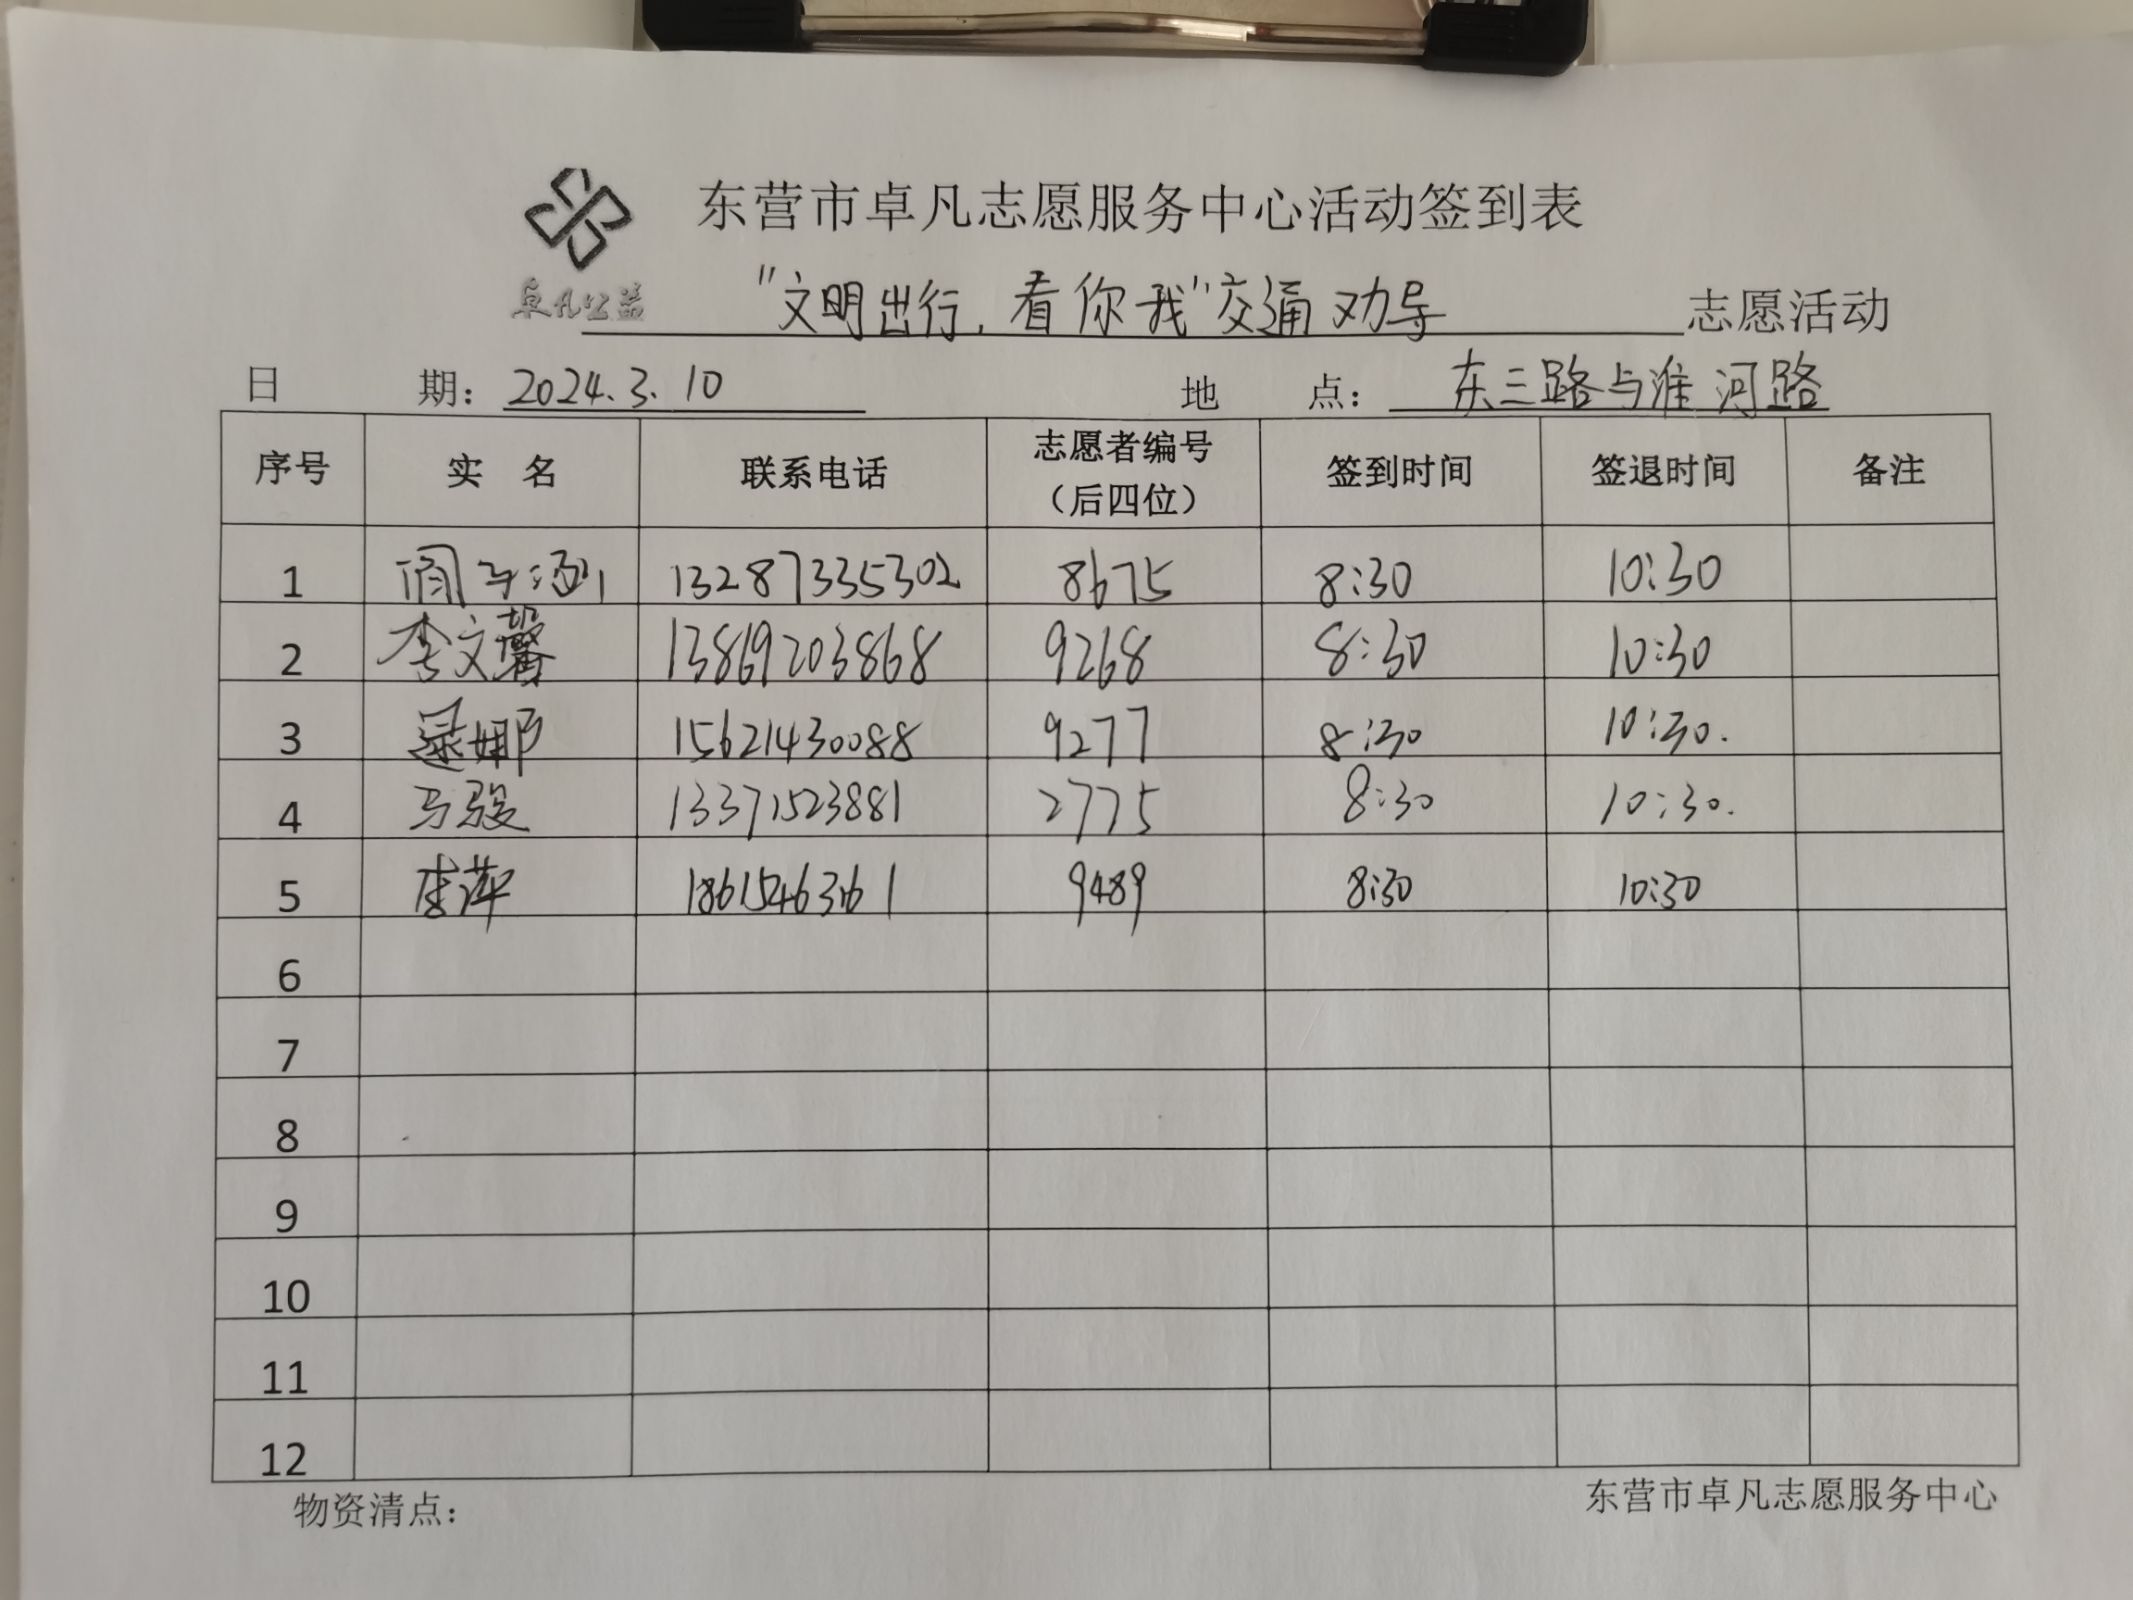 东营市卓凡志愿服务中心活动签到表
卓凡公益
"文明出行,看你我"交通劝导 志愿活动
日 期: 2024.3.10 地 点: 东三路与淮河路
序号 实 名 联系电话 志愿者编号(后四位) 签到时间 签退时间 备注
1 13287335302 8675 8:30 10:30
2 李文馨 13869203868 9268 8:30 10:30
3 娜 15621430088 9277 8:30 10:30.
4 马骏 13371523881 2775 8:30 10:30.
5 李萍 9489 8:30 10:30
6
7
8
9
10
11
12
物资清点: 东营市卓凡志愿服务中心